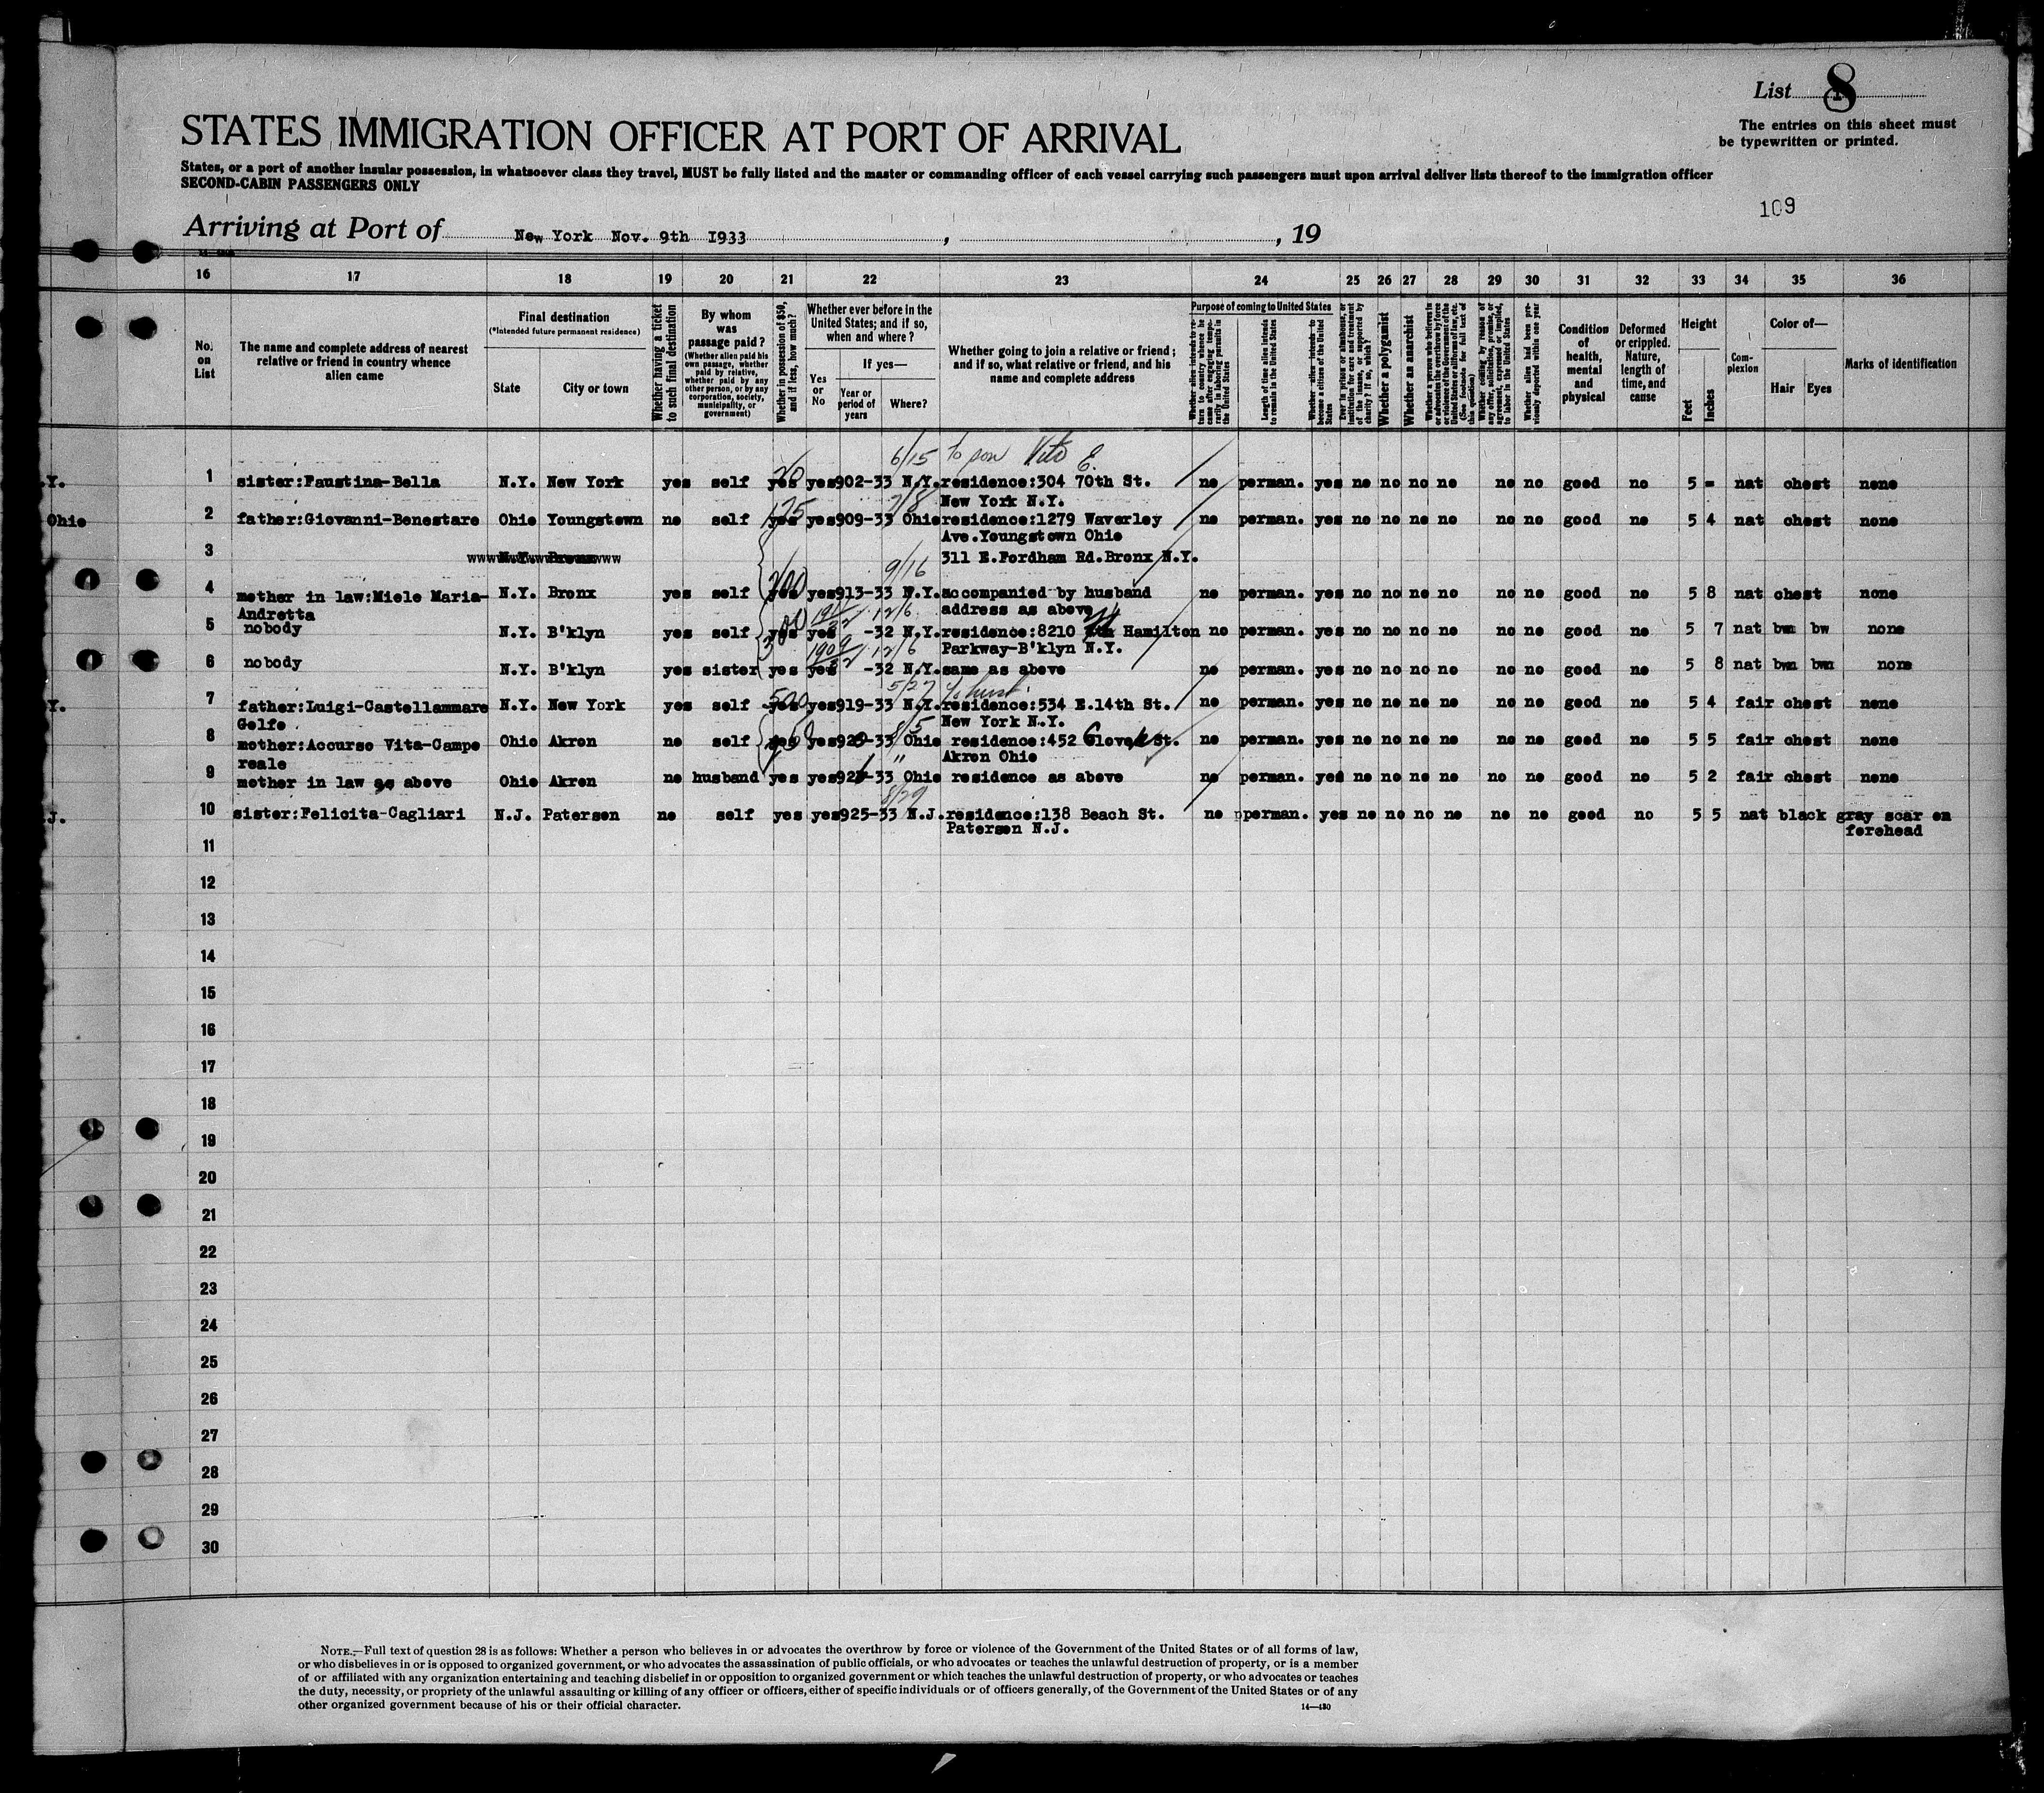 List 8
STATES IMMIGRATION OFFICER AT PORT OF ARRIVAL
The entries on this sheet must
be typewritten or printed.
States, or a port of another insular possession, in whatsoever class they travel, MUST be fully listed and the master or commanding officer of each vessel carrying such passengers must upon arrival deliver lists thereof to the immigration officer
SECOND-CABIN PASSENGERS ONLY
109
Arriving at Port of New York Nov. 9th 1933 , , 19
16 17 18 19 20 21 22 23 24 25 26 27 28 29 30 31 32 33 34 35 36
No. on List
The name and complete address of nearest relative or friend in country whence alien came
Final destination
(*Intended future permanent residence)
State
City or town
Whether having a ticket to such final destination
By whom was passage paid?
(Whether alien paid his own passage, whether paid by relative, whether paid by any other person, or by any corporation, society, municipality, or government)
Whether in possession of $50, and if less, how much?
Whether ever before in the United States; and if so, when and where?
Yes or No
If yes—
Year or period of years
Where?
Whether going to join a relative or friend; and if so, what relative or friend, and his name and complete address
Purpose of coming to United States
Whether alien intends to return to country whence he came after engaging temporarily in laboring pursuits in the United States
Length of time alien intends to remain in the United States
Whether alien intends to become a citizen of the United States
Ever in prison or almshouse, or institution for care and treatment of the insane, or supported by charity? If so, which?
Whether a polygamist
Whether an anarchist
Whether a person who believes in or advocates the overthrow by force or violence of the Government of the United States or all forms of law, etc. (See footnote for full text of this question)
Whether coming by reason of any offer, solicitation, promise, or agreement, expressed or implied, to labor in the United States
Whether alien had been previously deported within one year
Condition of health, mental and physical
Deformed or crippled. Nature, length of time, and cause
Height
Feet
Inches
Complexion
Color of—
Hair
Eyes
Marks of identification
6/15 to son Vito E.
Y. 1 sister:Faustina-Bella N.Y. New York yes self 20 yes yes 902-33 N.Y. residence:304 70th St. no perman. yes no no no no no no good no 5 = nat chest none
New York N.Y.
Ohio 2 father:Giovanni-Benestare Ohio Youngstown no self 175 yes yes 909-33 7/8 Ohio residence:1279 Waverley no perman. yes no no no no no no good no 5 4 nat chest none
Ave.Youngstown Ohio
3 N.Y. Bronx 311 E.Fordham Rd.Bronx N.Y.
9/16
4 mother in law:Miele Maria- N.Y. Bronx yes self 200 yes yes 913-33 N.Y. accompanied by husband no perman. yes no no no no no no good no 5 8 nat chest none
Andretta address as above
5 nobody N.Y. B'klyn yes self 300 yes yes -32 12/6 N.Y. residence:8210 Hamilton no perman. yes no no no no no no good no 5 7 nat bwn bw none
Parkway-B'klyn N.Y.
6 nobody N.Y. B'klyn yes sister yes yes 1909 -32 12/6 N.Y. same as above no perman. yes no no no no no no good no 5 8 nat bwn bwn none
5/27 to husb.
Y. 7 father:Luigi-Castellammare N.Y. New York yes self 500 yes yes 919-33 N.Y. residence:534 E.14th St. no perman. yes no no no no no no good no 5 4 fair chest none
Golfo New York N.Y.
8 mother:Accurso Vita-Campo Ohio Akron no self yes yes 920-33 8/5 Ohio residence:452 Clover St. no perman. yes no no no no no no good no 5 5 fair chest none
reale Akron Ohio
9 mother in law as above Ohio Akron no husband yes yes 921-33 " Ohio residence as above no perman. yes no no no no no no good no 5 2 fair chest none
8/29
J. 10 sister:Felicita-Cagliari N.J. Paterson no self yes yes 925-33 N.J. residence:138 Beach St. no perman. yes no no no no no no good no 5 5 nat black gray scar on
Paterson N.J. forehead
11
12
13
14
15
16
17
18
19
20
21
22
23
24
25
26
27
28
29
30
NOTE.—Full text of question 28 is as follows: Whether a person who believes in or advocates the overthrow by force or violence of the Government of the United States or of all forms of law,
or who disbelieves in or is opposed to organized government, or who advocates the assassination of public officials, or who advocates or teaches the unlawful destruction of property, or is a member
of or affiliated with any organization entertaining and teaching disbelief in or opposition to organized government or which teaches the unlawful destruction of property, or who advocates or teaches
the duty, necessity, or propriety of the unlawful assaulting or killing of any officer or officers, either of specific individuals or of officers generally, of the Government of the United States or of any
other organized government because of his or their official character.
14—430